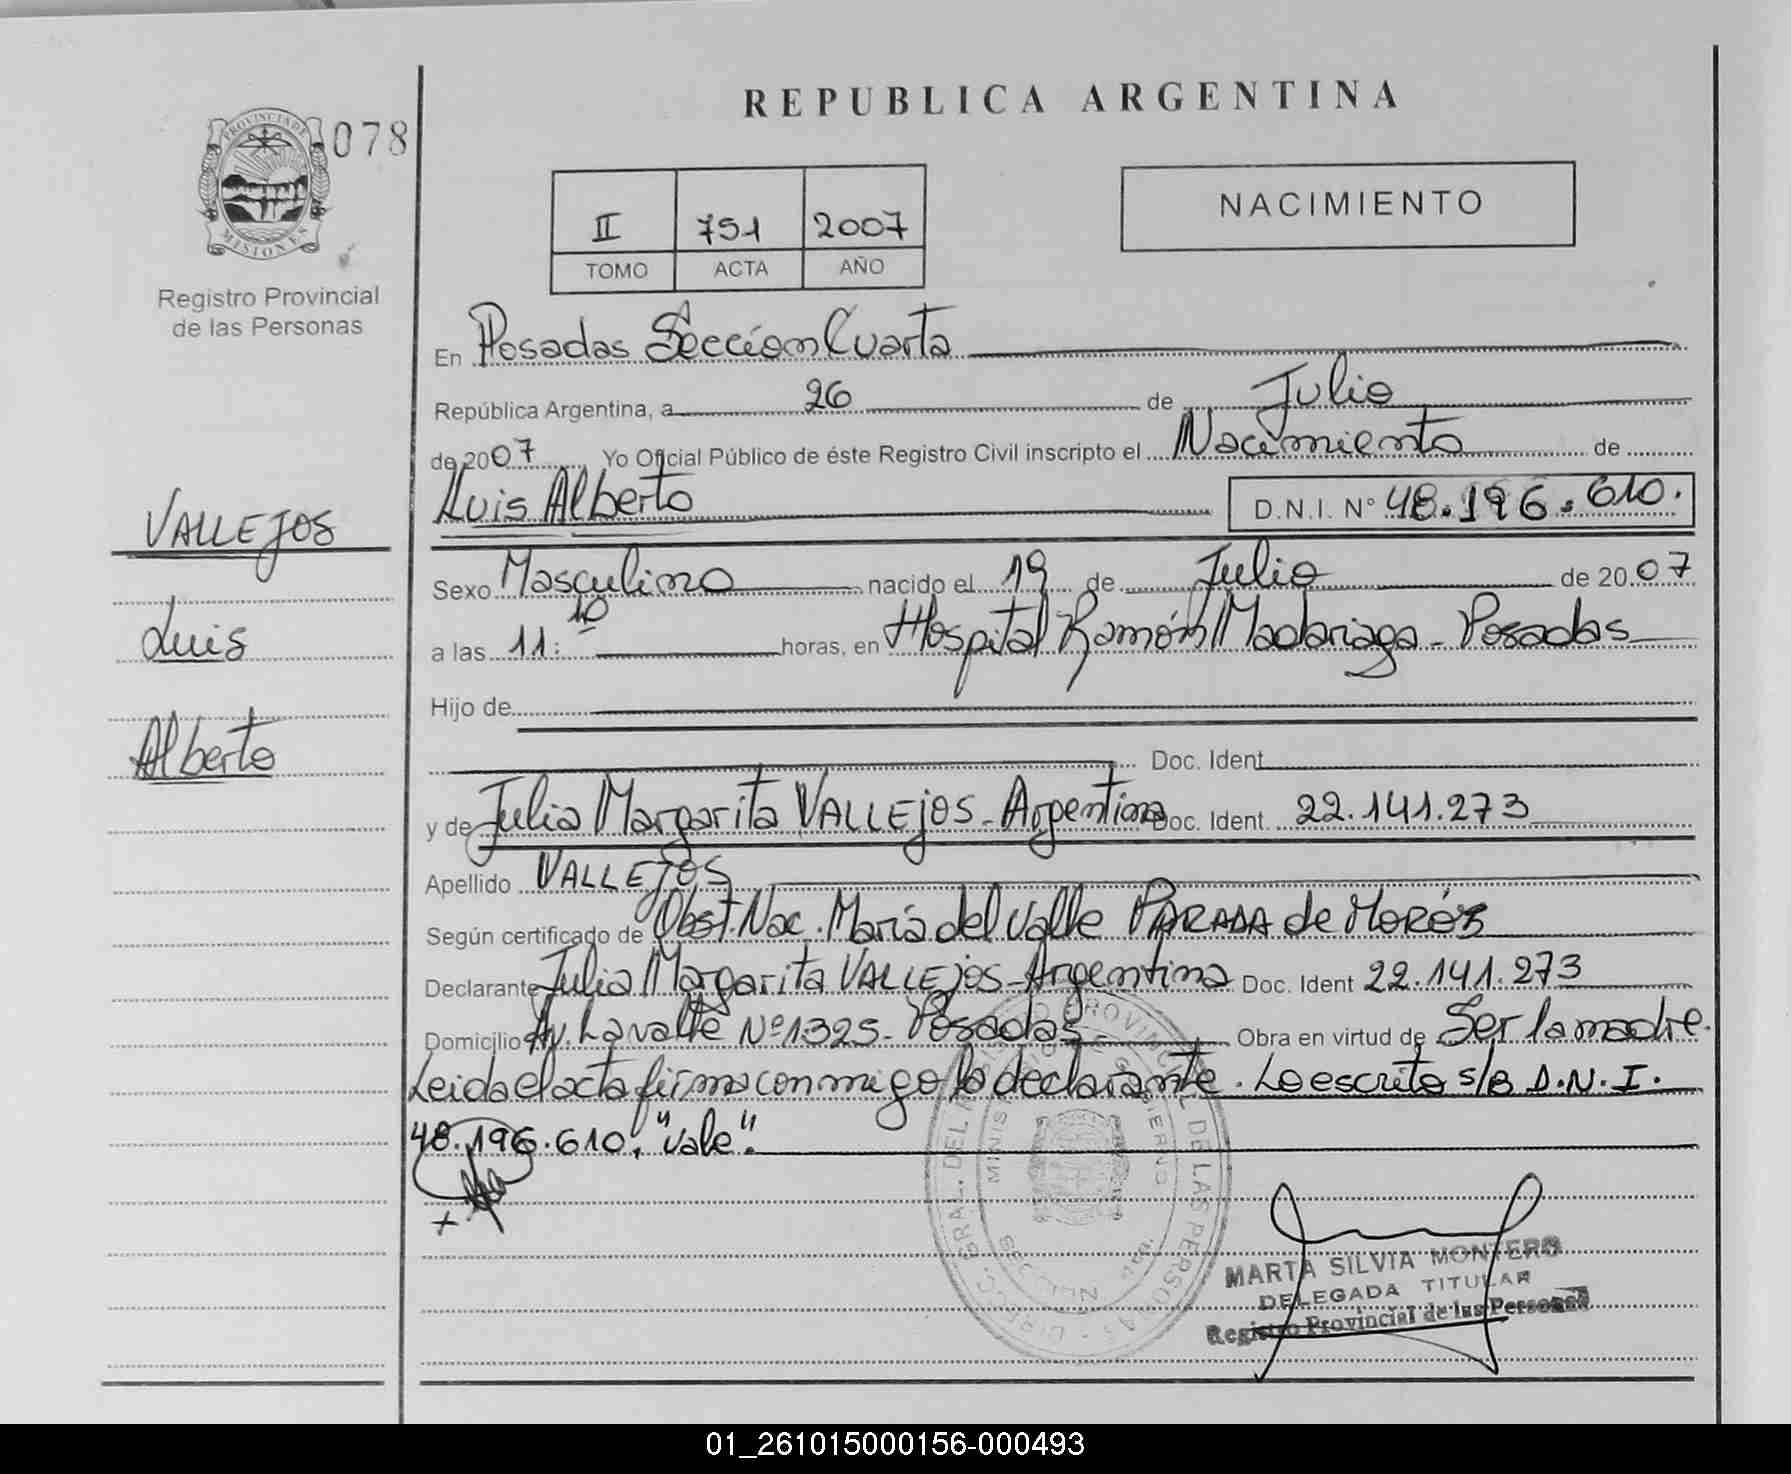 REPUBLICA ARGENTINA
PROVINCIA DE
MISIONES
078
Registro Provincial
de las Personas
II 751 2007
TOMO ACTA AÑO
NACIMIENTO
VALLEJOS
Luis
Alberto
En Posadas Sección Cuarta
República Argentina, a 26 de Julio
de 2007 Yo Oficial Público de éste Registro Civil inscripto el Nacimiento de
Luis Alberto D.N.I. Nº 48.196.610.
Sexo Masculino nacido el 19 de Julio de 2007
a las 11:10 horas, en Hospital Ramón Madariaga - Posadas
Hijo de
Doc. Ident
y de Julia Margarita VALLEJOS - Argentina Doc. Ident. 22.141.273
Apellido VALLEJOS
Según certificado de Obst. Nac. María del Valle PARADA de
Declarante Julia Margarita VALLEJOS - Argentina Doc. Ident 22.141.273
Domicilio Av. Lavalle Nº 1325 - Posadas Obra en virtud de Ser la madre.
Leida el acta firma conmigo la declarante. Lo escrito s/B D.N.I.
48.196.610. "Vale".
MARTA SILVIA MONTERO
DELEGADA TITULAR
Registro Provincial de las Personas
01_261015000156-000493